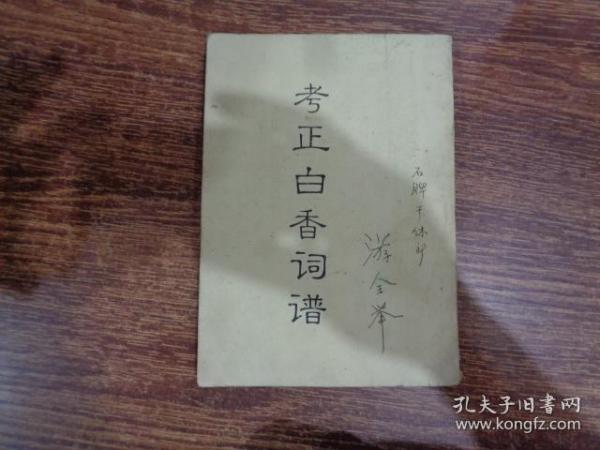 考正白香词谱
石牌干休所
游全举
孔夫子旧书网
www.kongfz.com